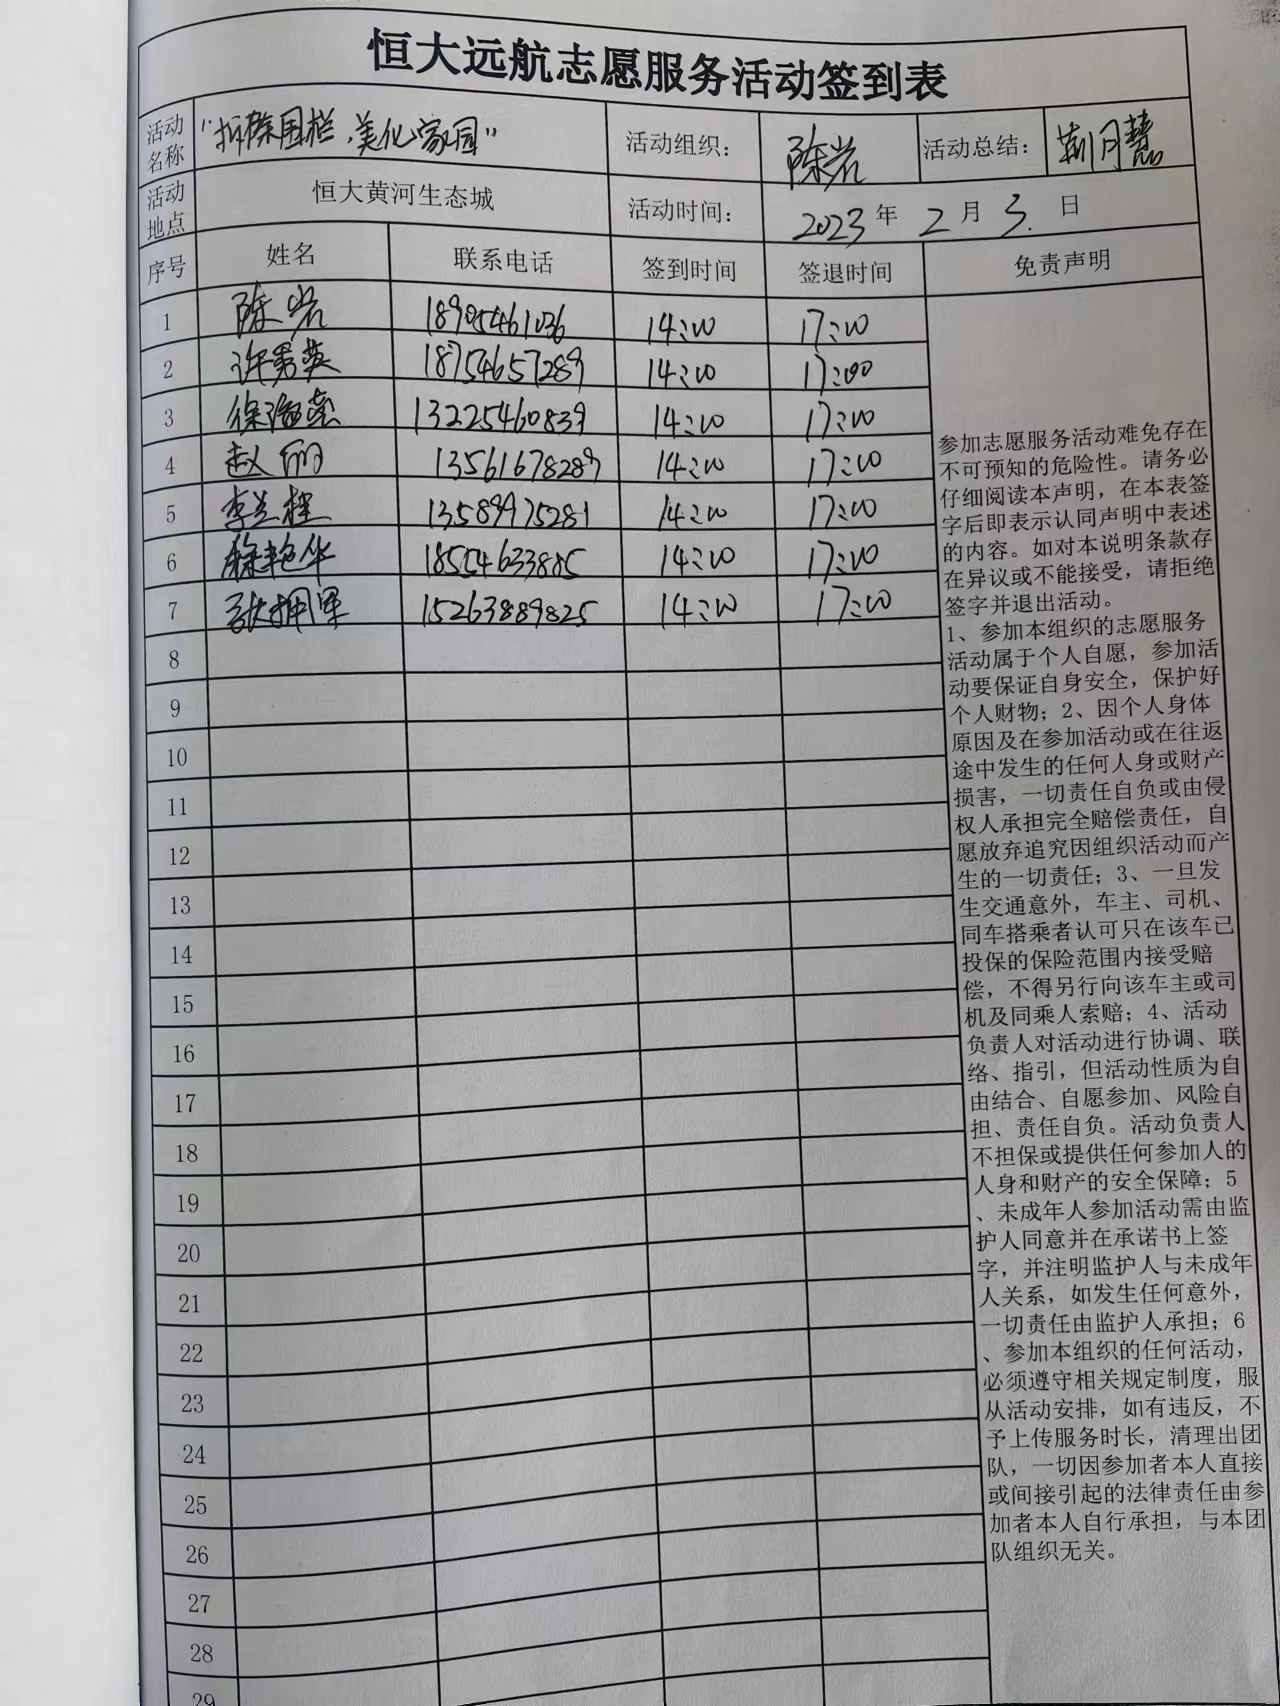 恒大远航志愿服务活动签到表
活动名称 "拆除围栏,美化家园" 活动组织: 陈岩 活动总结: 荆月慧
活动地点 恒大黄河生态城 活动时间: 2023 年 2 月 3 日
序号 姓名 联系电话 签到时间 签退时间 免责声明
1 陈岩 18905461036 14:00 17:00
2 许秀英 18754657289 14:00 17:00
3 徐 13225460839 14:00 17:00
4 赵丽 13561678289 14:00 17:00
5 李兰桂 13589975281 14:00 17:00
6 艳华 18554633885 14:00 17:00
7 张拥军 15263889825 14:00 17:00
8
9
10
11
12
13
14
15
16
17
18
19
20
21
22
23
24
25
26
27
28
29
参加志愿服务活动难免存在
不可预知的危险性。请务必
仔细阅读本声明，在本表签
字后即表示认同声明中表述
的内容。如对本说明条款存
在异议或不能接受，请拒绝
签字并退出活动。
1、参加本组织的志愿服务
活动属于个人自愿，参加活
动要保证自身安全，保护好
个人财物；2、因个人身体
原因及在参加活动或在往返
途中发生的任何人身或财产
损害，一切责任自负或由侵
权人承担完全赔偿责任，自
愿放弃追究因组织活动而产
生的一切责任；3、一旦发
生交通意外，车主、司机、
同车搭乘者认可只在该车已
投保的保险范围内接受赔
偿，不得另行向该车主或司
机及同乘人索赔；4、活动
负责人对活动进行协调、联
络、指引，但活动性质为自
由结合、自愿参加、风险自
担、责任自负。活动负责人
不担保或提供任何参加人的
人身和财产的安全保障；5
、未成年人参加活动需由监
护人同意并在承诺书上签
字，并注明监护人与未成年
人关系，如发生任何意外，
一切责任由监护人承担；6
、参加本组织的任何活动，
必须遵守相关规定制度，服
从活动安排，如有违反，不
予上传服务时长，清理出团
队，一切因参加者本人直接
或间接引起的法律责任由参
加者本人自行承担，与本团
队组织无关。